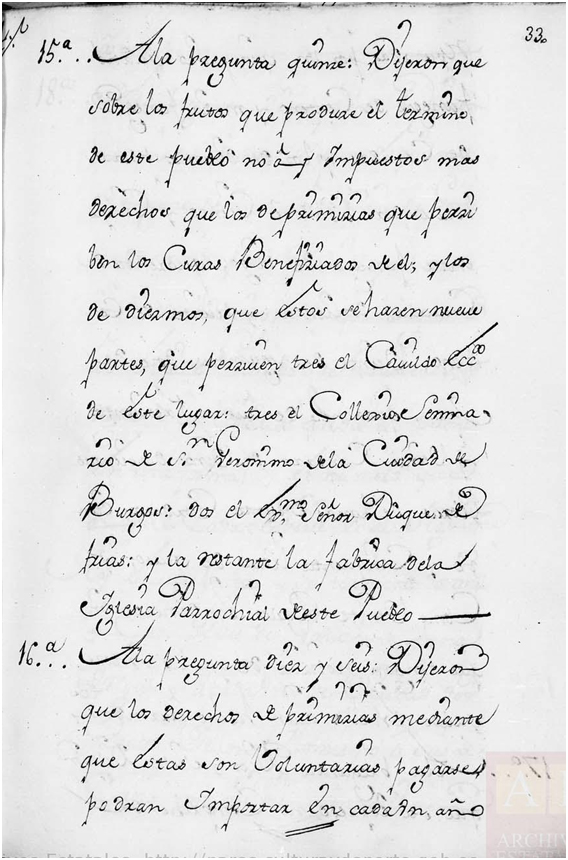 33.
15.ª.. A la pregunta quinze: Dijeron que
sobre los frutos que produze el termino
de este pueblo no ay Impuestos mas
derechos que los de primizias que perzi
ben los Curas Benefiziados de el; y los
de diezmos, que estos se hazen nueve
partes, que perziven tres el Cavildo Ecc.co
de este lugar: tres el Collexio Semina-
rio de S.n Geronimo de la Ciudad de
Burgos: dos el Ex.mo Señor Duque de
frias: y la restante la fabrica de la
Iglesia Parrochial de este Pueblo
16.ª.. A la pregunta diez y seis: Dijeron
que los derechos de primizias mediante
que estas son Voluntarias pagarse
podran Importar en cada Un año
ARCHIV